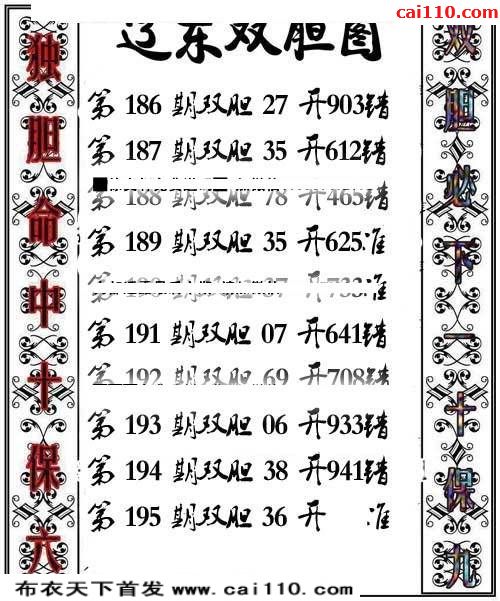 cai110.com
辽东双胆图
独胆命中十保六
双胆必下一十保九
第 186 期双胆 27 开903错
第 187 期双胆 35 开612错
第 188 期双胆 78 开465错
第 189 期双胆 35 开625准
期双胆 开733准
第 191 期双胆 07 开641错
第 192 期双胆 69 开708错
第 193 期双胆 06 开933错
第 194 期双胆 38 开941错
第 195 期双胆 36 开 准
布衣天下首发 www.cai110.com